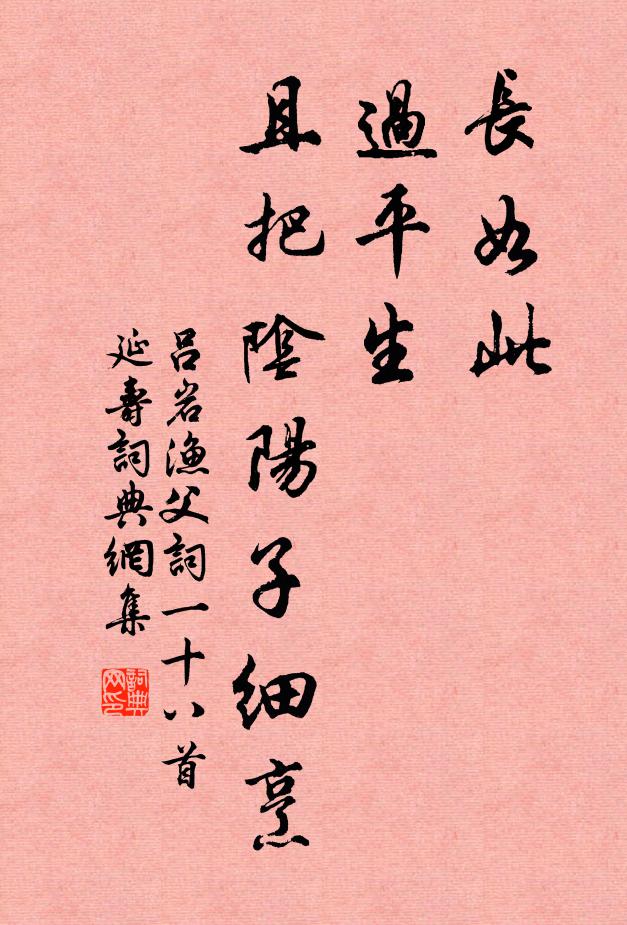 長如此
過平生
且把陰陽子細烹
呂岩漁父詞一十八首
延壽詞典網集
詞典
网印